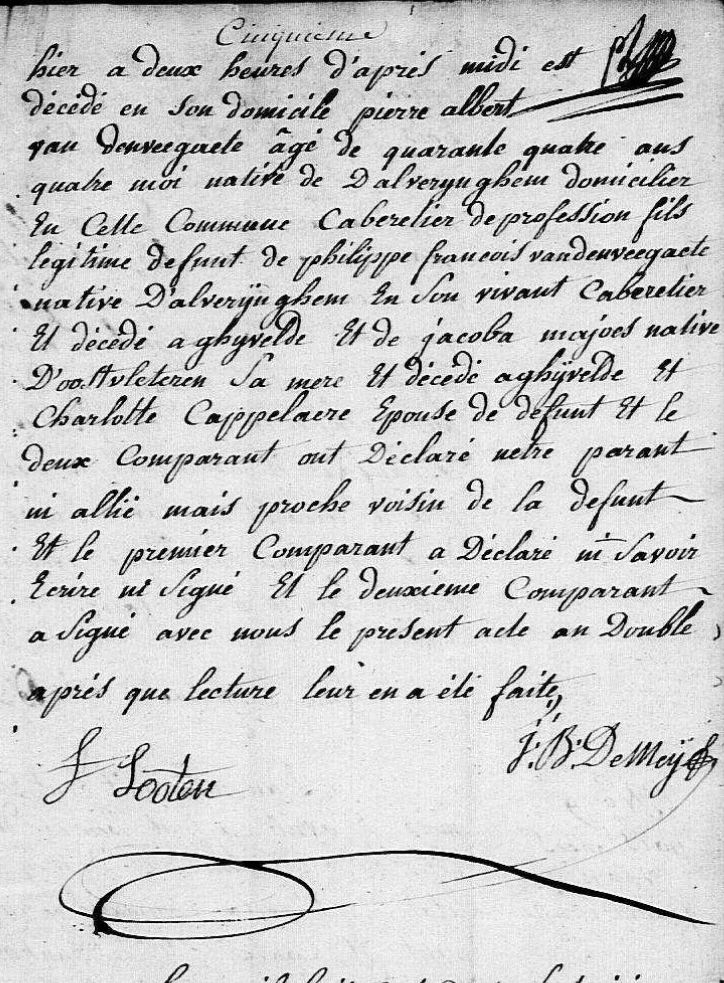 Cinquieme
hier a deux heures d'aprés midi est
décédé en son domicile pierre albert
van denveegaete âgé de quarante quatre ans
quatre moi native de Dalverynghem domicilier
En Cette Commune Caberetier de profession fils
légitime defunt de philippe francois vandenveegaete
native D'alverynghem En Son vivant Caberetier
Et décédé a ghyvelde Et de jacoba majoes native
D'oostvleteren Sa mere Et décédé a ghÿvelde Et
Charlotte Cappelaere Epouse de defunt Et le
deux Comparant ont Déclaré netre parant
ni allié mais proche voisin de la defunt
Et le premier Comparant a Déclaré ni Savoir
Ecrire ni Signé Et le deuxieme Comparant
a Signé avec nous le present acte an Double
aprés que lecture leur en a été faite
J. B. De Meÿ
f Looten